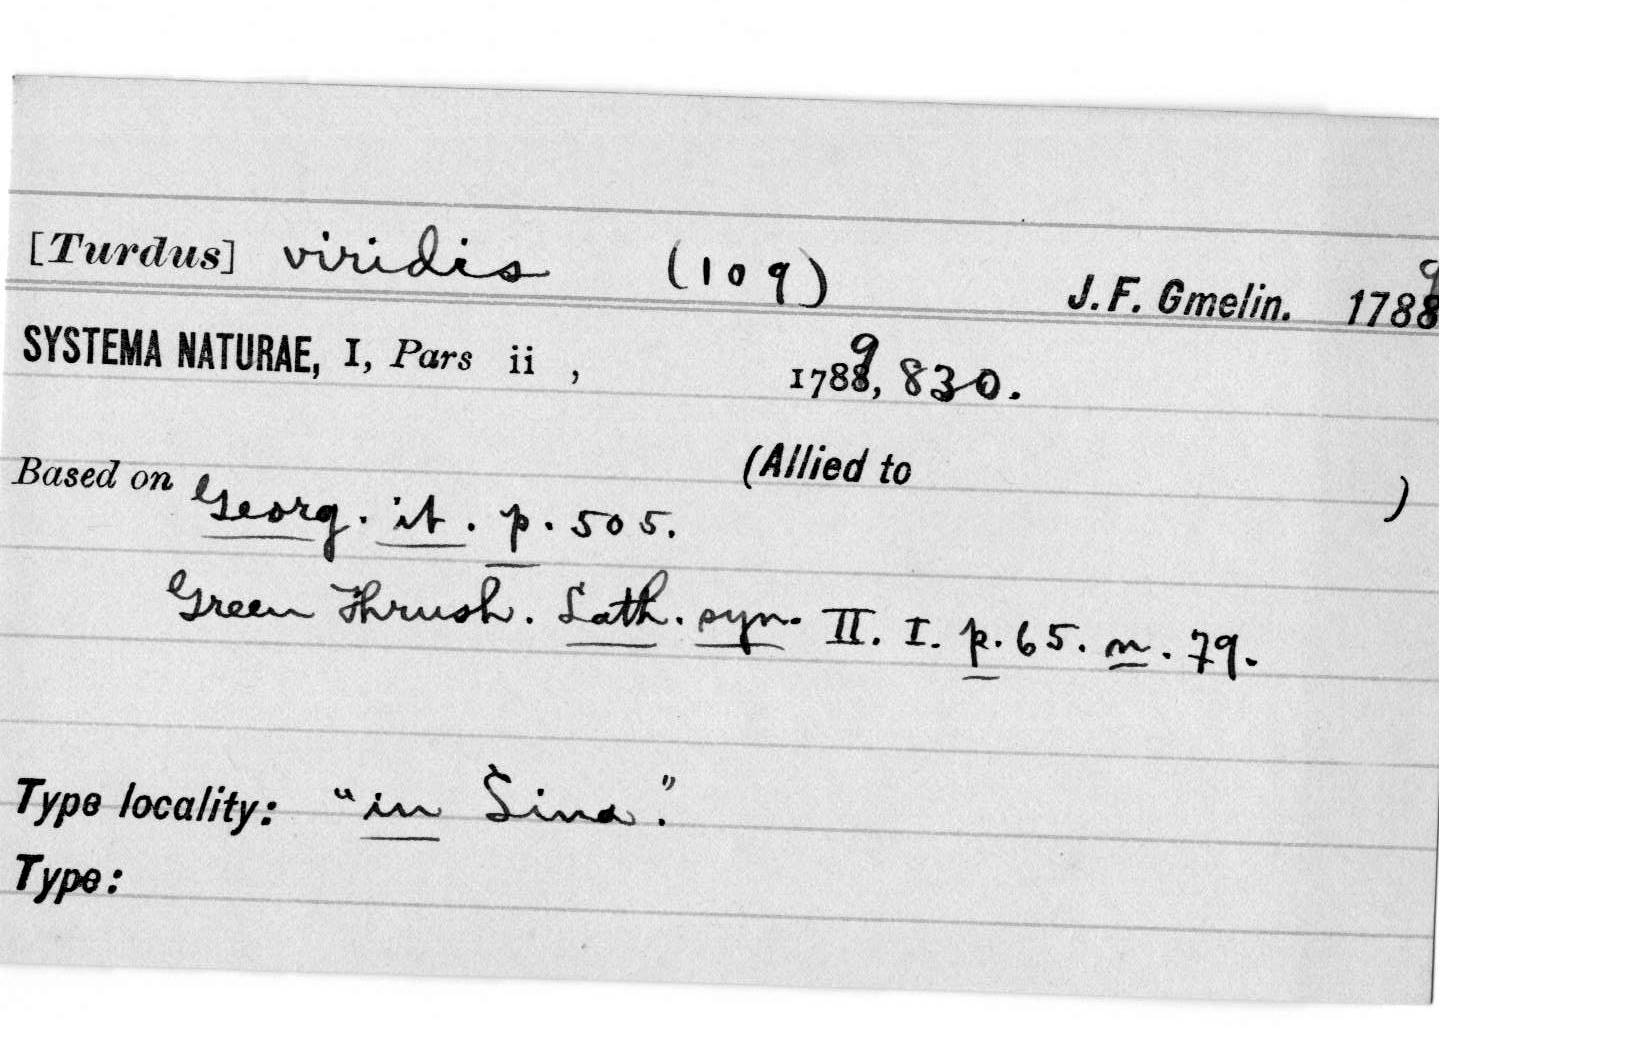 [Turdus] viridis (109) J. F. Gmelin. 1789
SYSTEMA NATURAE, I, Pars ii , 1789, 830.
Based on Georg. it. p. 505. (Allied to )
Green Thrush. Lath. syn. II. I. p. 65. n. 79.
Type locality: "in Sina".
Type: